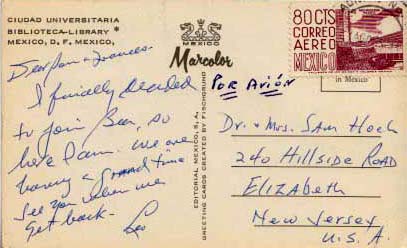 CIUDAD UNIVERSITARIA
BIBLIOTECA-LIBRARY ®
MEXICO, D, F, MEXICO,
Dear Sam + Frances
I finally decided
to join Ben, so
here I am. We are
having a grand time
See you when we
get back -
Leo
MEXICO
Marcolor
POR AVIÓN
EDITORIAL MEXICO, S. A.
GREETING CARDS CREATED BY FISCHGRUND
80 CTS
CORREO
AEREO
MEXICO
in Mexico
Dr. + Mrs. Sam Hoch
240 Hillside Road
Elizabeth
New Jersey
U.S.A.